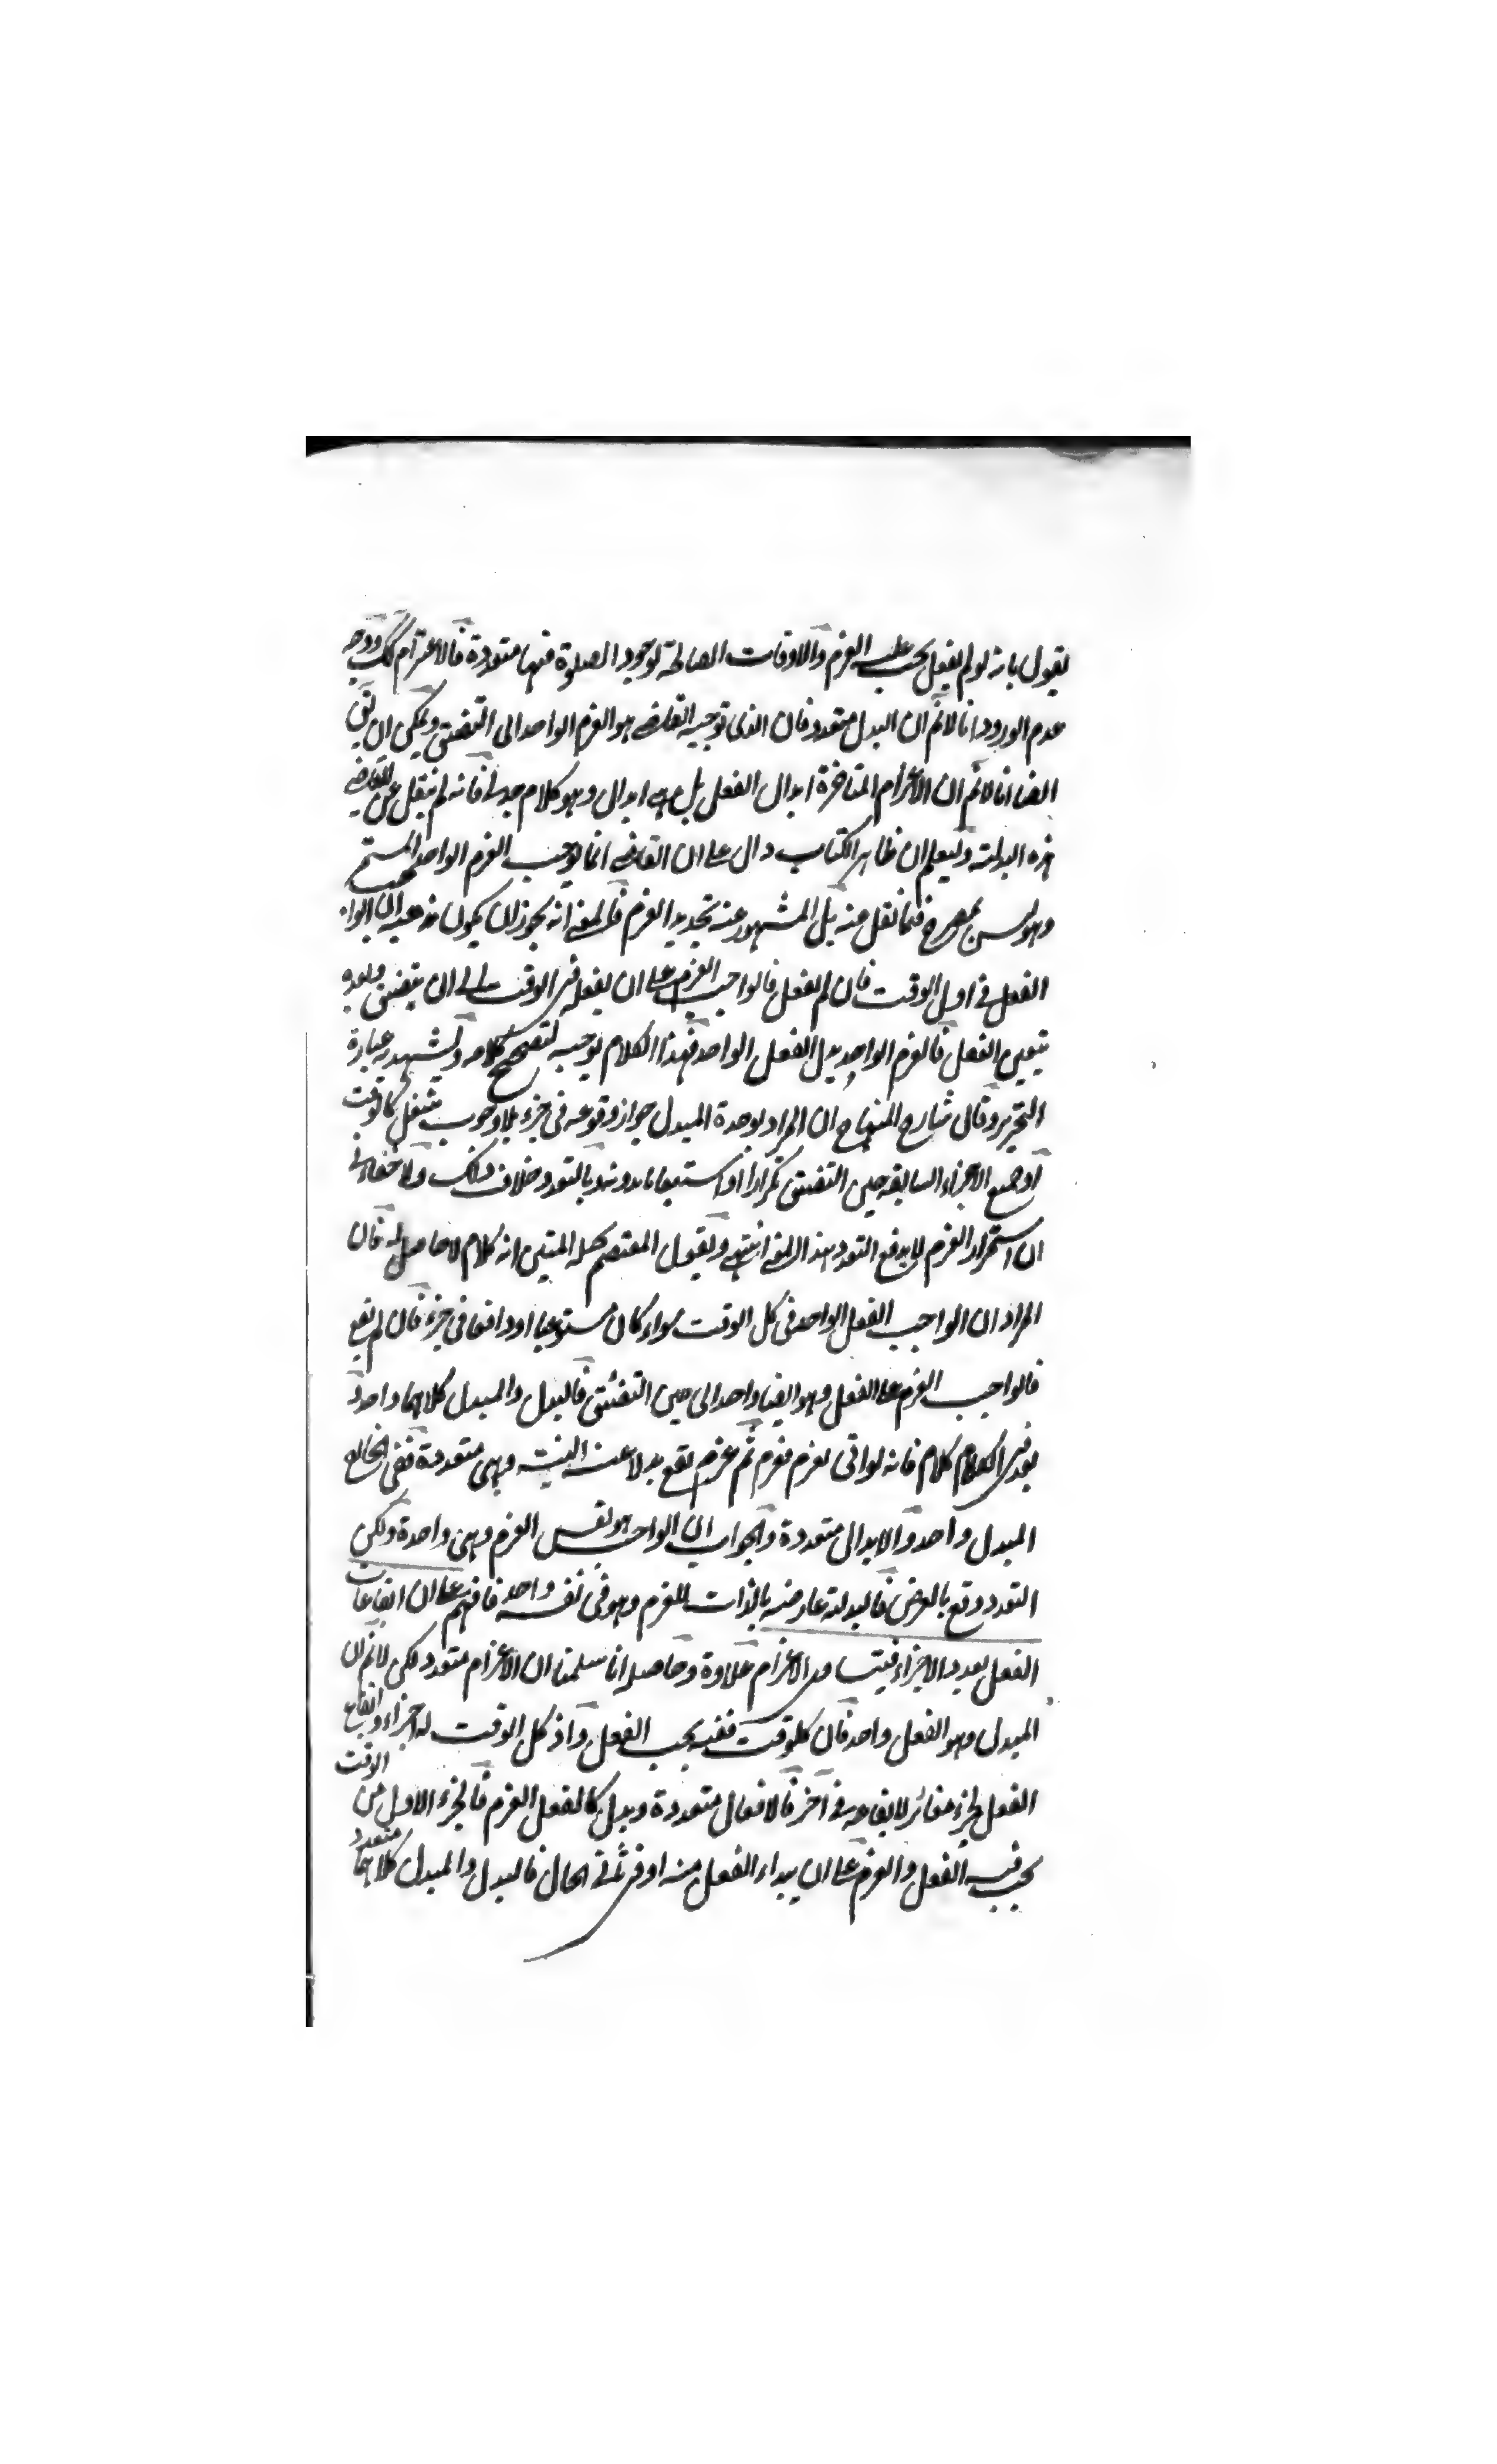 يقول بانه لو لم يفعل يجب عليه العزم والاوقات الصالحة لوجود الصلوة فيها متعددة فالاعتزام كك ووجه
عدم الورود انا لانم ان البدل متعدد فان الذى توجبه القاضى هو العزم الواحد الى التضيق ويمكن ان يق
ايضا انا لانم ان الاعزام المتاخرة ابدال الفعل بل هى ابدال وهو كلام جدلى فانه لم ينقل عن القاضى
هذه البدلية وليعلم ان ظاهر الكتاب دال على ان القاضى انما يوجب العزم الواحد المستمر
وهو ليس بمصرح فيما نقل عنه بل المشهور عنه تجديد العزم فالمعنى انه يجوز ان يكون مذهبه ان الواجب
الفعل فى اول الوقت فان لم يفعل فالواجب العزم على ان يفعله فى الوقت الى ان يتضيق وبعده
يتعين الفعل فالعزم الواحد بدل الفعل الواحد فهذا الكلام توجيه لتصحيح كلامه ويشهد به عبارة
التحرير وقال شارح المنهاج ان المراد بوحدة المبدل جواز وقوعه فى جزء بلا وجوب كالوقت
او جميع الاجزاء السابقة حين التضيق تكرارا او استيعابا بدونه وبالتعدد خلاف ذلك ولا خفاء فى
ان استمرار العزم لا يدفع التعدد بهذا المعنى انتهى ويقول المعتصم بحبله المتين انه كلام لا حاصل له فان
المراد ان الواجب الفعل الواحد فى كل الوقت سواء كان مستوعبا او واقعا فى جزء فان لم يقع
فالواجب العزم على الفعل وهو ايضا واحد الى حين التضيق فالبدل والمبدل كلاهما واحد و
بعد فى الكلام كلام فانه لو اتى بعزم فعزم ثم عزم يقع بدلا عنه البتة وهى متعددة ففى الواقع
المبدل واحد والابدال متعددة والجواب ان الواجب هو نفس العزم وهى واحدة ولكن
التعدد وقع بالعرض فالبدلية عارضة بالذات للعزم وهو فى نفسه واحد فافهم على ان ايقاعات
الفعل بعدد الاجزاء فيتساوى الاعزام علاوة وحاصله انا سلمنا ان الاعزام متعدد لكن لانم ان
المبدل وهو الفعل واحد فان كل وقت ففيه يجب الفعل واذ كل الوقت له اجزاء وايقاع
الفعل لجزء مغائر لايقاعه فى آخر فالافعال متعددة وبدل كل فعل العزم فالجزء الاول من الوقت
يجب فيه الفعل والعزم على ان يبداء الفعل منه او فى ثانى الحال فالبدل والمبدل كلاهما متعدد